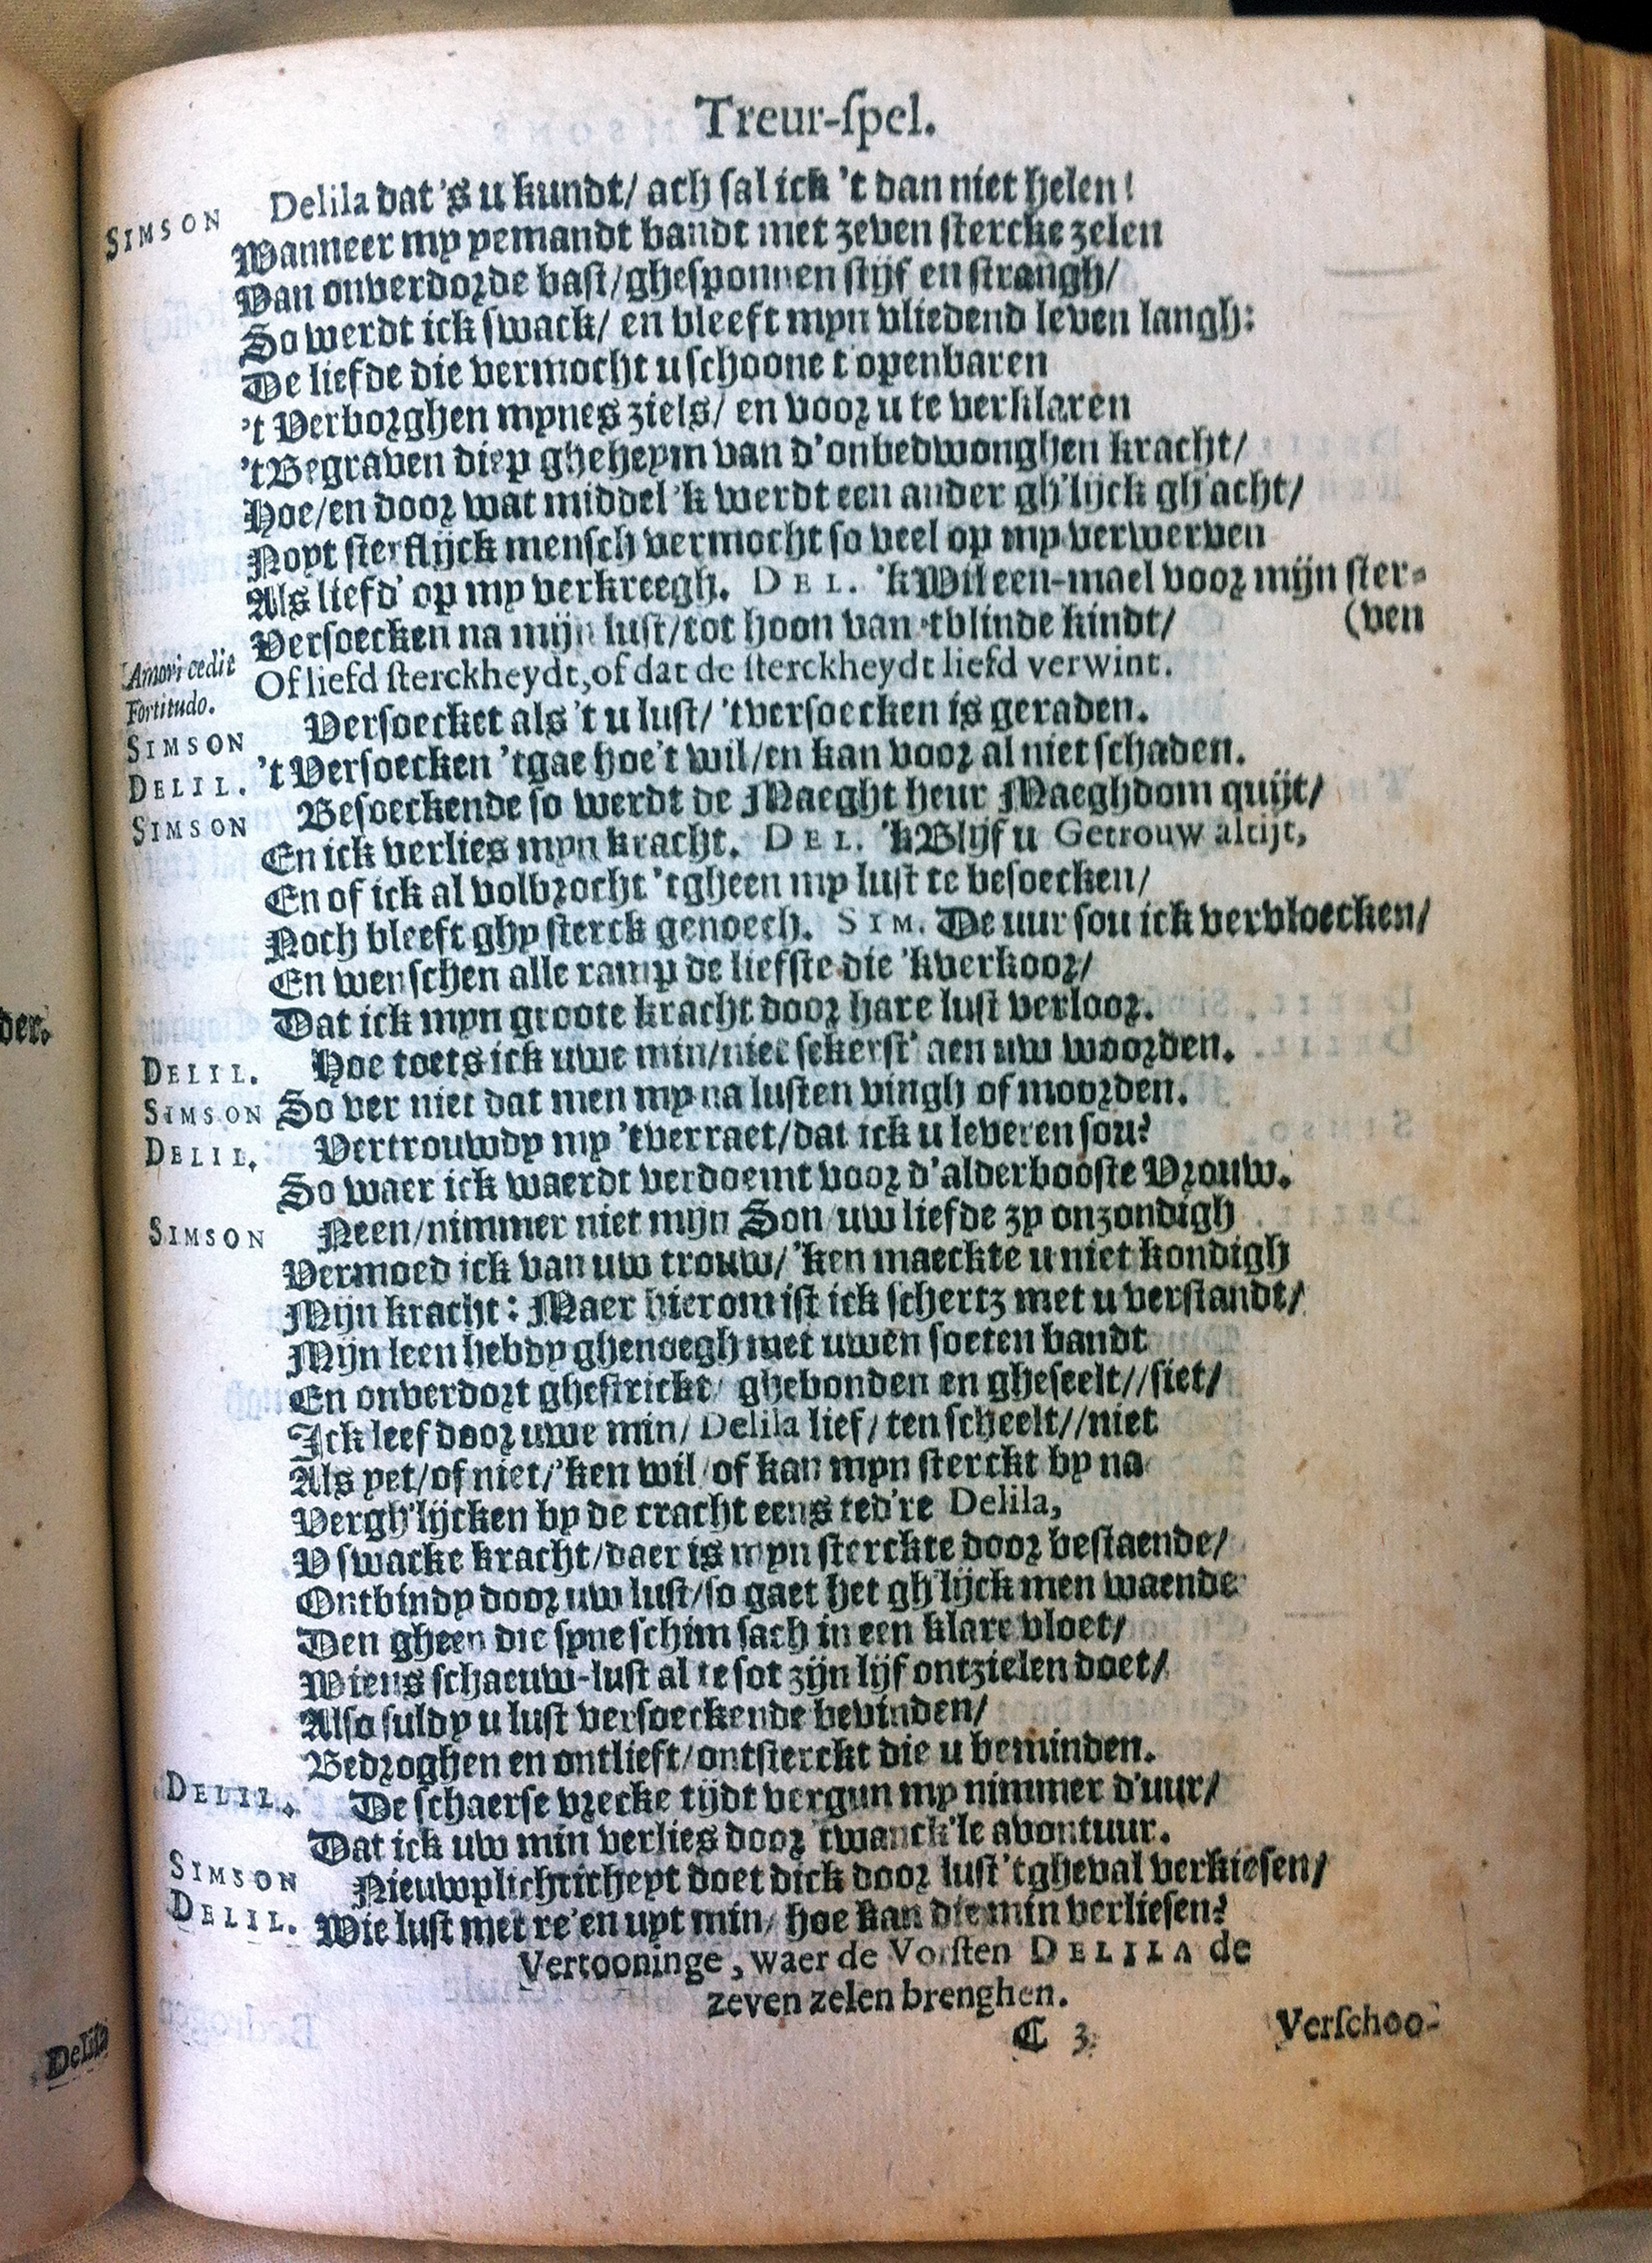 Treur-spel.
SIMSON Delila dat 's u kundt/ ach sal ick 't dan niet helen!
Wanneer my yemandt bandt met zeven stercke zelen
Van onverdorde bast/ghesponnen stijf en strangh/
So werdt ick swack/ en bleeft myn vliedend leven langh:
De liefde die vermocht u schoone t'openbaren
't Verborghen mynes ziels/ en voor u te verklaren
't Begraven diep gheheym van d'onbedwonghen kracht/
Hoe/en door wat middel 'k werdt een ander gh'lijck gh'acht/
Noyt sterflijck mensch vermocht so veel op my verwerven
Als liefd' op my verkreegh. DEL. 'k Wil een-mael voor mijn ster-
(ven
Versoecken na mijn lust/tot hoon van 't blinde kindt/
Amori cedit Fortitudo.
Of liefd sterckheydt, of dat de sterckheydt liefd verwint.
SIMSON Versoecket als 't u lust/ 't versoecken is geraden.
DELIL. 't Versoecken 't gae hoe 't wil/en kan voor al niet schaden.
SIMSON Besoeckende so werdt de Maeght heur Maeghdom quijt/
En ick verlies myn kracht. DEL. 'k Blijf u Getrouw altijt,
En of ick al volbrocht 't gheen my lust te besoecken/
Noch bleeft ghy sterck genoech. SIM. De uur sou ick vervloecken/
En wenschen alle ramp de liefste die 'k verkoor/
Dat ick myn groote kracht door hare lust verloor.
DELIL. Hoe toets ick uwe min/niet sekerst' aen uw woorden.
SIMSON So ver niet dat men my na lusten vingh of moorden.
DELIL. Vertrouwdy my 't verraet/dat ick u leveren sou?
So waer ick waerdt verdoemt voor d'alderbooste Vrouw.
SIMSON Neen/nimmer niet mijn Son/uw liefde zy onzondigh
Vermoed ick van uw trouw/ 'k en maeckte u niet kondigh
Mijn kracht: Maer hierom ist ick schertz met u verstandt/
Mijn leen hebdy ghenoegh met uwen soeten bandt
En onverdort ghestrickt/ ghebonden en gheseelt//siet/
Ick leef door uwe min/ Delila lief/ ten scheelt//niet
Als yet/of niet/'k en wil/of kan myn sterckt by na
Vergh'lijcken by de cracht eens ted're Delila,
V swacke kracht/daer is myn sterckte door bestaende/
Ontbindy door uw lust/so gaet het gh'lijck men waende
Den gheen die syne schim sach in een klare vloet/
Wiens schaeuw-lust al te sot zijn lijf ontzielen doet/
Also suldy u lust versoeckende bevinden/
Bedroghen en ontlieft/ontsterckt die u beminden.
DELIL. De schaerse vrecke tijdt vergun my nimmer d'uur/
Dat ick uw min verlies door 't wanck'le avontuur.
SIMSON Nieuwplichticheyt doet dick door lust 't gheval verkiesen/
DELIL. Wie lust met re'en uyt min/ hoe kan die min verliesen?
Vertooninge, waer de Vorsten DELILA de
zeven zelen brenghen.
C 3. Verschoo-
der.
Delila